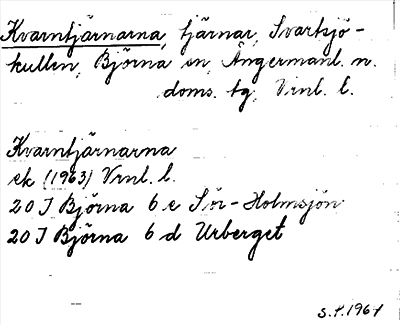 Kvarntjärnarna, tjärnar, Svartsjö-
kullen, Björna sn, Ångermanl. n.
doms. tg, Vrnl. l.
Kvarntjärnarna
ek (1963) Vrnl. l.
20 I Björna 6 e Sör-Holmsjön
20 I Björna 6 d Urberget
S.F. 1967